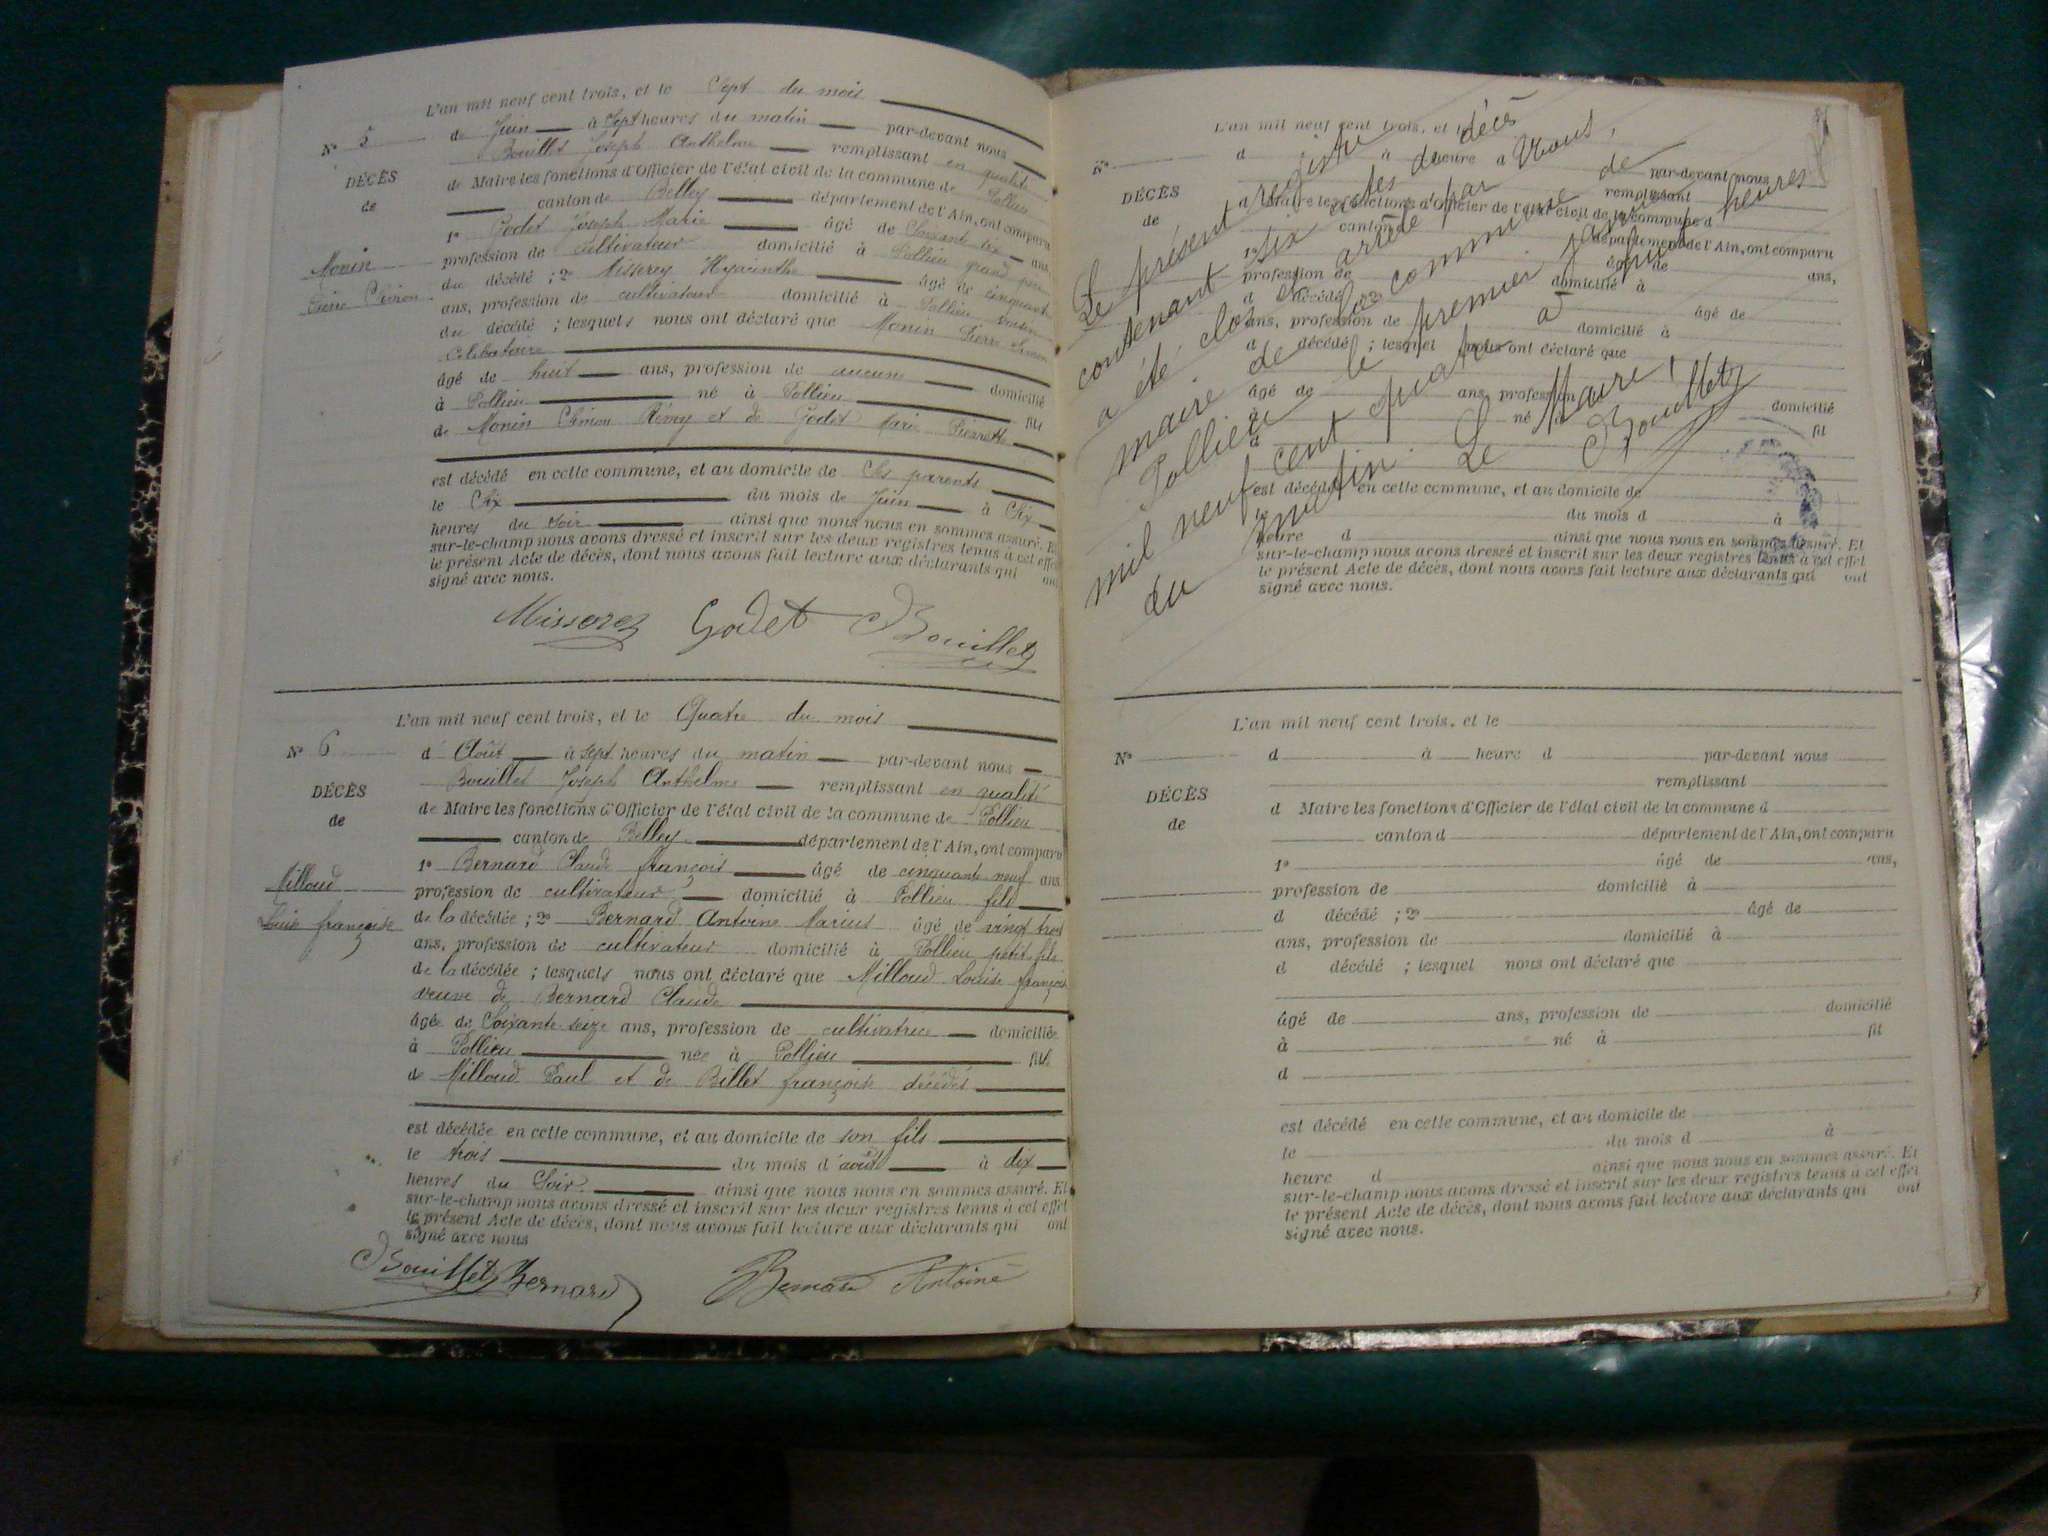 L'an mil neuf cent trois, et le Sept du mois
N° 5 de Juin à Sept heures du matin par-devant nous
Bouillet Joseph Anthelme remplissant en qualité
DÉCÈS de Maire les fonctions d'Officier de l'état civil de la commune de Pollieu
de canton de Belley département de l'Ain, ont comparu
1° Godet Joseph Marie âgé de Soixante six ans,
Monin profession de Cultivateur domicilié à Pollieu grand père
Pierre Simon du décédé ; 2° Misserey Hyacinthe âgé de cinquante
ans, profession de cultivateur domicilié à Pollieu voisin
du décédé ; lesquels nous ont déclaré que Monin Pierre Simon
Célibataire
âgé de huit ans, profession de aucune domicilié
à Pollieu né à Pollieu fils
de Monin Simon Rémy et de Godet Marie Pierrette
est décédé en cette commune, et au domicile de Ses parents
le Six du mois de Juin à Six
heures du soir ainsi que nous nous en sommes assuré. Et
sur-le-champ nous avons dressé et inscrit sur les deux registres tenus à cet effet
le présent Acte de décès, dont nous avons fait lecture aux déclarants qui ont
signé avec nous.
Misserey Godet Bouillet
L'an mil neuf cent trois, et le Quatre du mois
N° 6 d'Août à Sept heures du matin par-devant nous
Bouillet Joseph Anthelme remplissant en qualité
DÉCÈS de Maire les fonctions d'Officier de l'état civil de la commune de Pollieu
de canton de Belley département de l'Ain, ont comparu
1° Bernard Claude françois âgé de cinquante neuf ans
Milloud profession de cultivateur domicilié à Pollieu fils
Louise françoise de la décédée ; 2° Bernard Antoine Marius âgé de vingt trois
ans, profession de cultivateur domicilié à Pollieu petit fils
de la décédée ; lesquels nous ont déclaré que Milloud Louise françoise
veuve de Bernard Claude
âgée de Soixante seize ans, profession de cultivatrice domiciliée
à Pollieu née à Pollieu fille
de Milloud Paul et de Billet françoise décédés
est décédée en cette commune, et au domicile de son fils
le trois du mois d'août à dix
heures du Soir ainsi que nous nous en sommes assuré. Et
sur-le-champ nous avons dressé et inscrit sur les deux registres tenus à cet effet
le présent Acte de décès, dont nous avons fait lecture aux déclarants qui ont
signé avec nous
Bouillet Bernard Bernard Antoine
Le présent registre
contenant six actes de décès
a été clos et arrêté par Nous,
maire de la commune de
Pollieu le premier janvier
mil neuf cent quatre à huit heures
du matin. Le Maire,
Bouillet
L'an mil neuf cent trois, et le
N° d à heure d par-devant nous
remplissant
DÉCÈS d Maire les fonctions d'Officier de l'état civil de la commune d
de canton d département de l'Ain, ont comparu
1° âgé de ans,
profession de domicilié à
d décédé ; 2° âgé de
ans, profession de domicilié à
d décédé ; lesquel nous ont déclaré que
âgé de ans, profession de domicilié
à né à fil
d
est décédé en cette commune, et au domicile de
le du mois d à
heure d ainsi que nous nous en sommes assuré. Et
sur-le-champ nous avons dressé et inscrit sur les deux registres tenus à cet effet
le présent Acte de décès, dont nous avons fait lecture aux déclarants qui ont
signé avec nous.
L'an mil neuf cent trois, et le
N° d à heure d par-devant nous
remplissant
DÉCÈS d Maire les fonctions d'Officier de l'état civil de la commune d
de canton d département de l'Ain, ont comparu
1° âgé de ans,
profession de domicilié à
d décédé ; 2° âgé de
ans, profession de domicilié à
d décédé ; lesquel nous ont déclaré que
âgé de ans, profession de domicilié
à né à fil
d
est décédé en cette commune, et au domicile de
le du mois d à
heure d ainsi que nous nous en sommes assuré. Et
sur-le-champ nous avons dressé et inscrit sur les deux registres tenus à cet effet
le présent Acte de décès, dont nous avons fait lecture aux déclarants qui ont
signé avec nous.